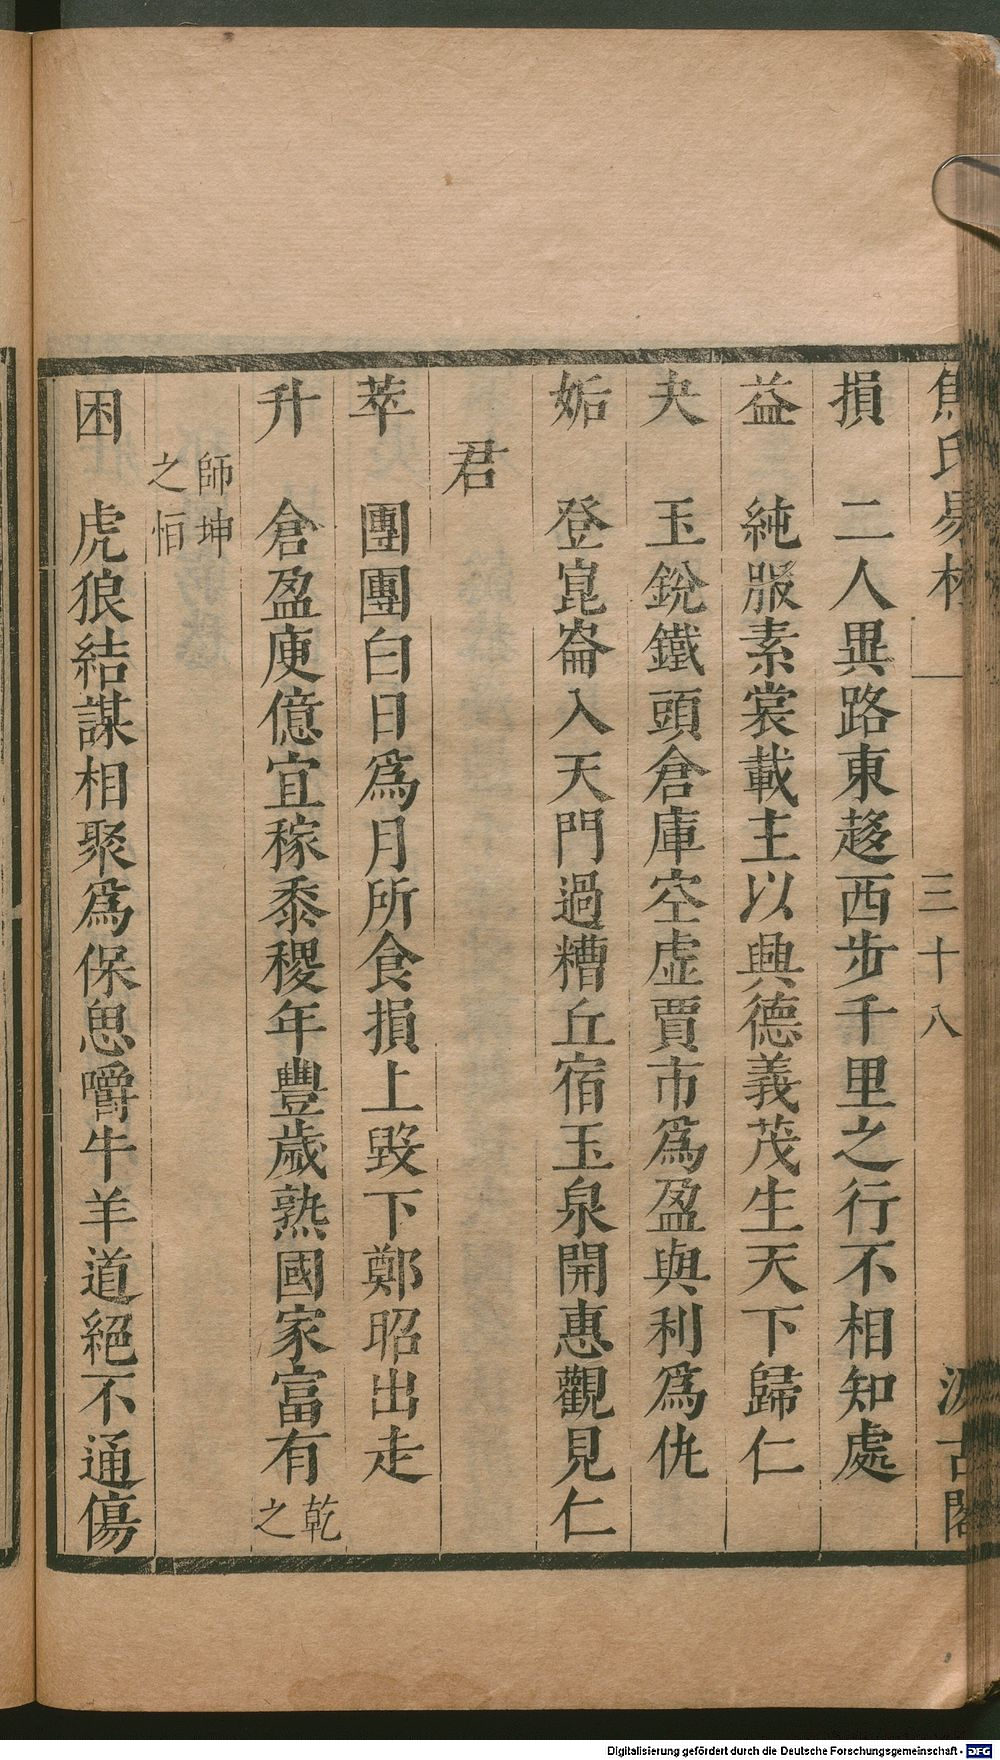 焦氏易林 一 三十八 汲古閣
損 二人異路東趍西步千里之行不相知處
益 純服素裳載主以興德義茂生天下歸仁
夬 玉銳鐵頭倉庫空虛賈市爲盈與利爲仇
姤 登崑崙入天門過糟丘宿玉泉開惠觀見仁
君
萃 團團白日爲月所食損上毀下鄭昭出走
升 倉盈庾億宜稼黍稷年豐歲熟國家富有 乾之
師坤
之恒
困 虎狼結謀相聚爲保思嚼牛羊道絕不通傷
Digitalisierung gefördert durch die Deutsche Forschungsgemeinschaft - DFG